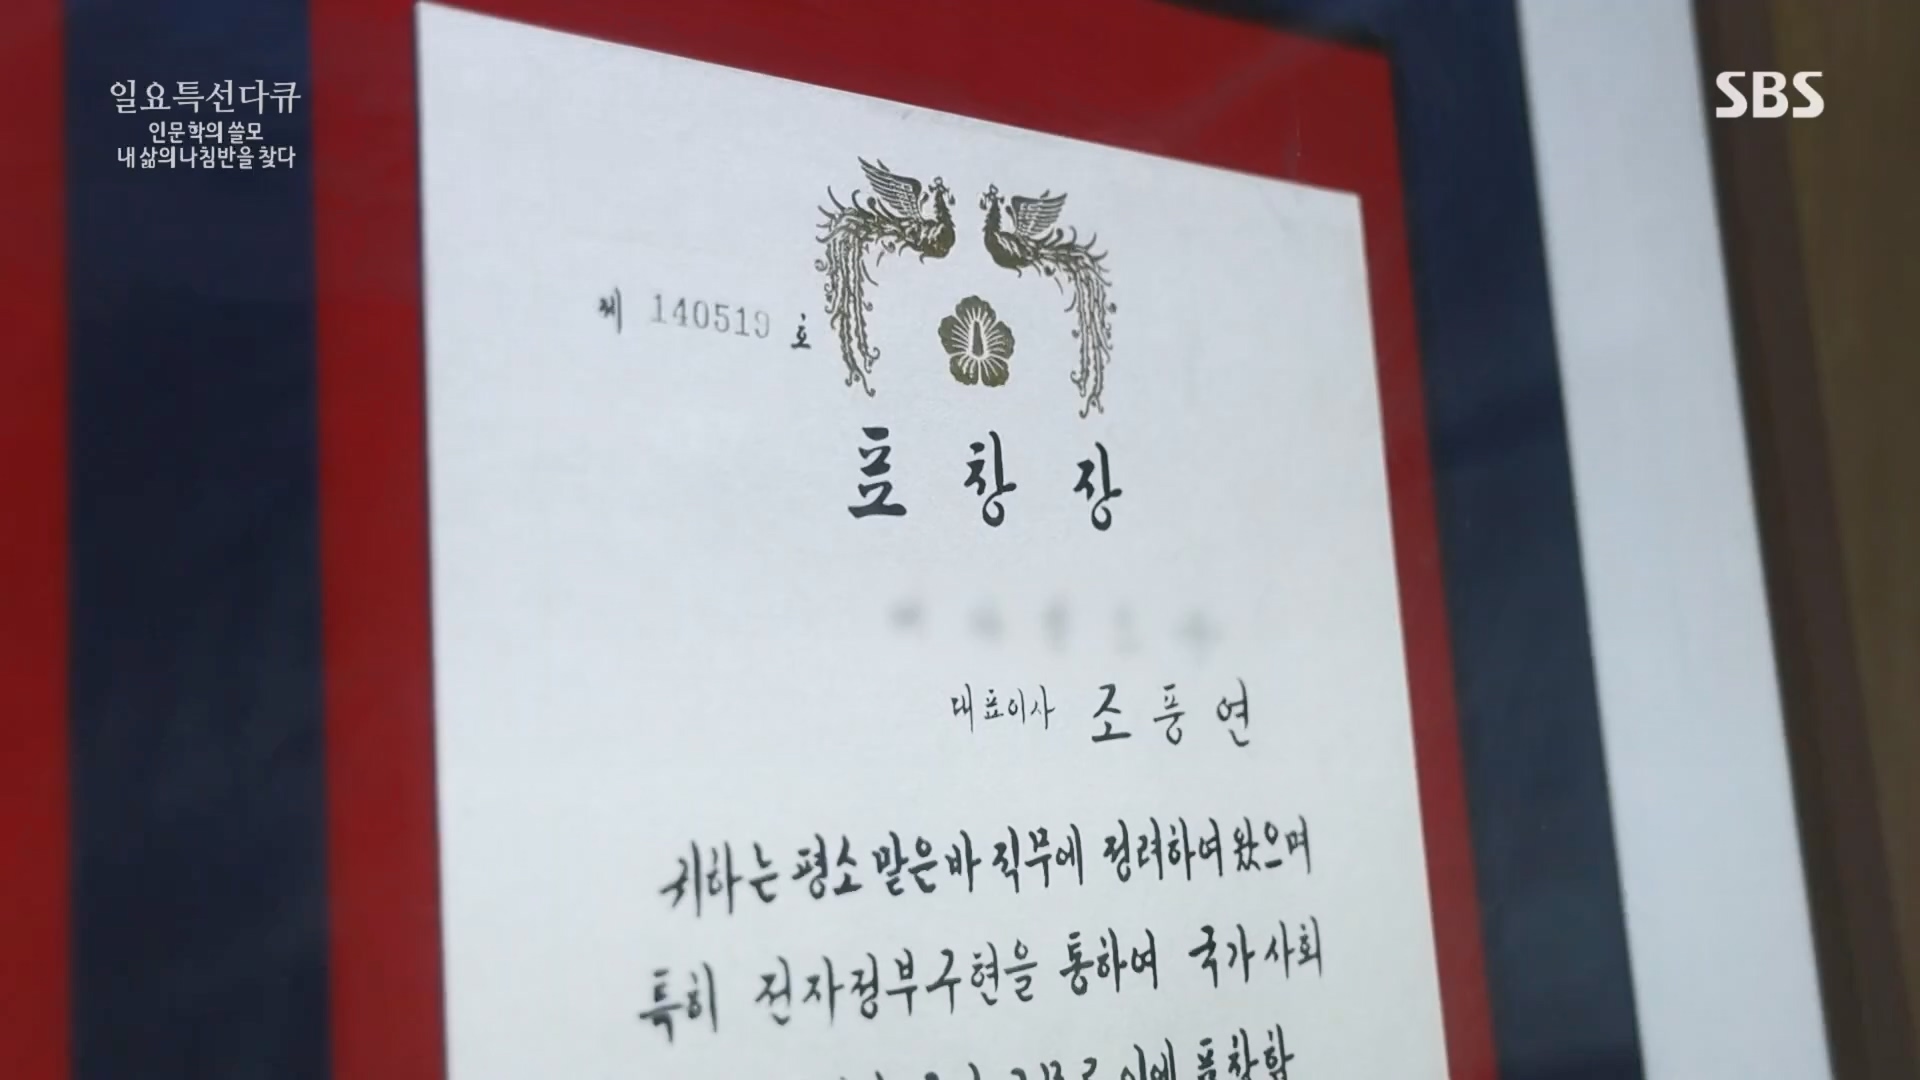 일요특선다큐
인문학의 쓸모
내 삶의 나침반을 찾다
SBS
제 140519 호
표 창 장
대표이사 조 풍 연
귀하는 평소 맡은바 직무에 정려하여 왔으며
특히 전자정부구현을 통하여 국가사회
이에 표창함